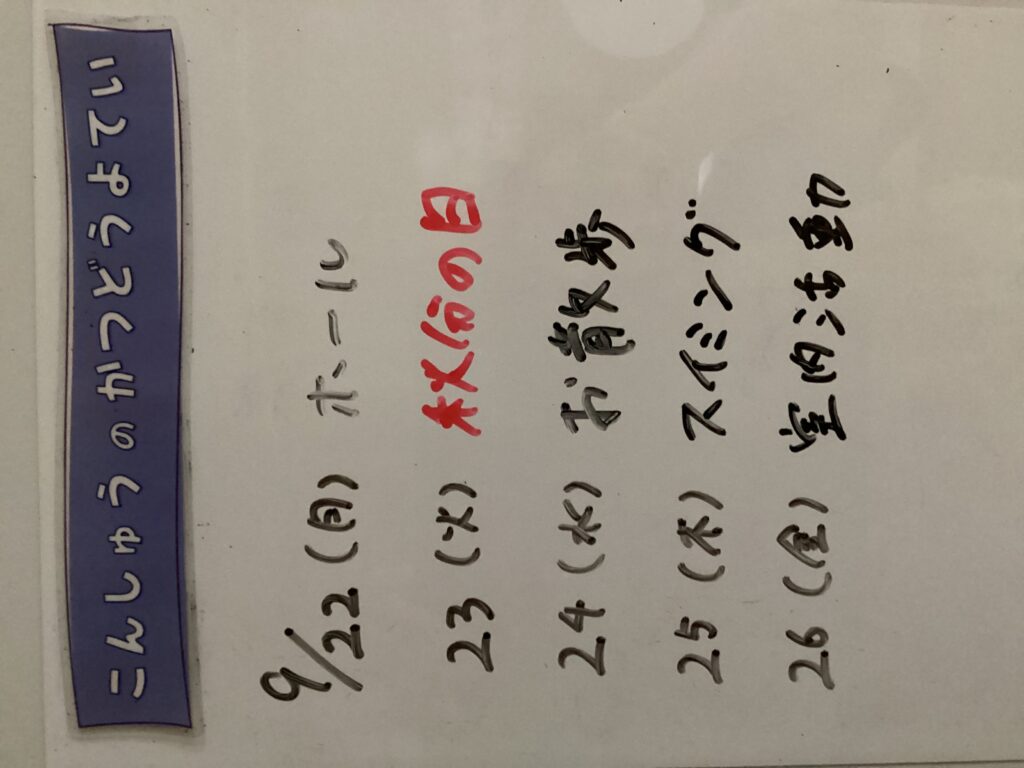 こんしゅうのかつどうよてい
9/22(月) ホール
23(火) 秋分の日
24(水) お散歩
25(木) スイミング
26(金) 室内活動